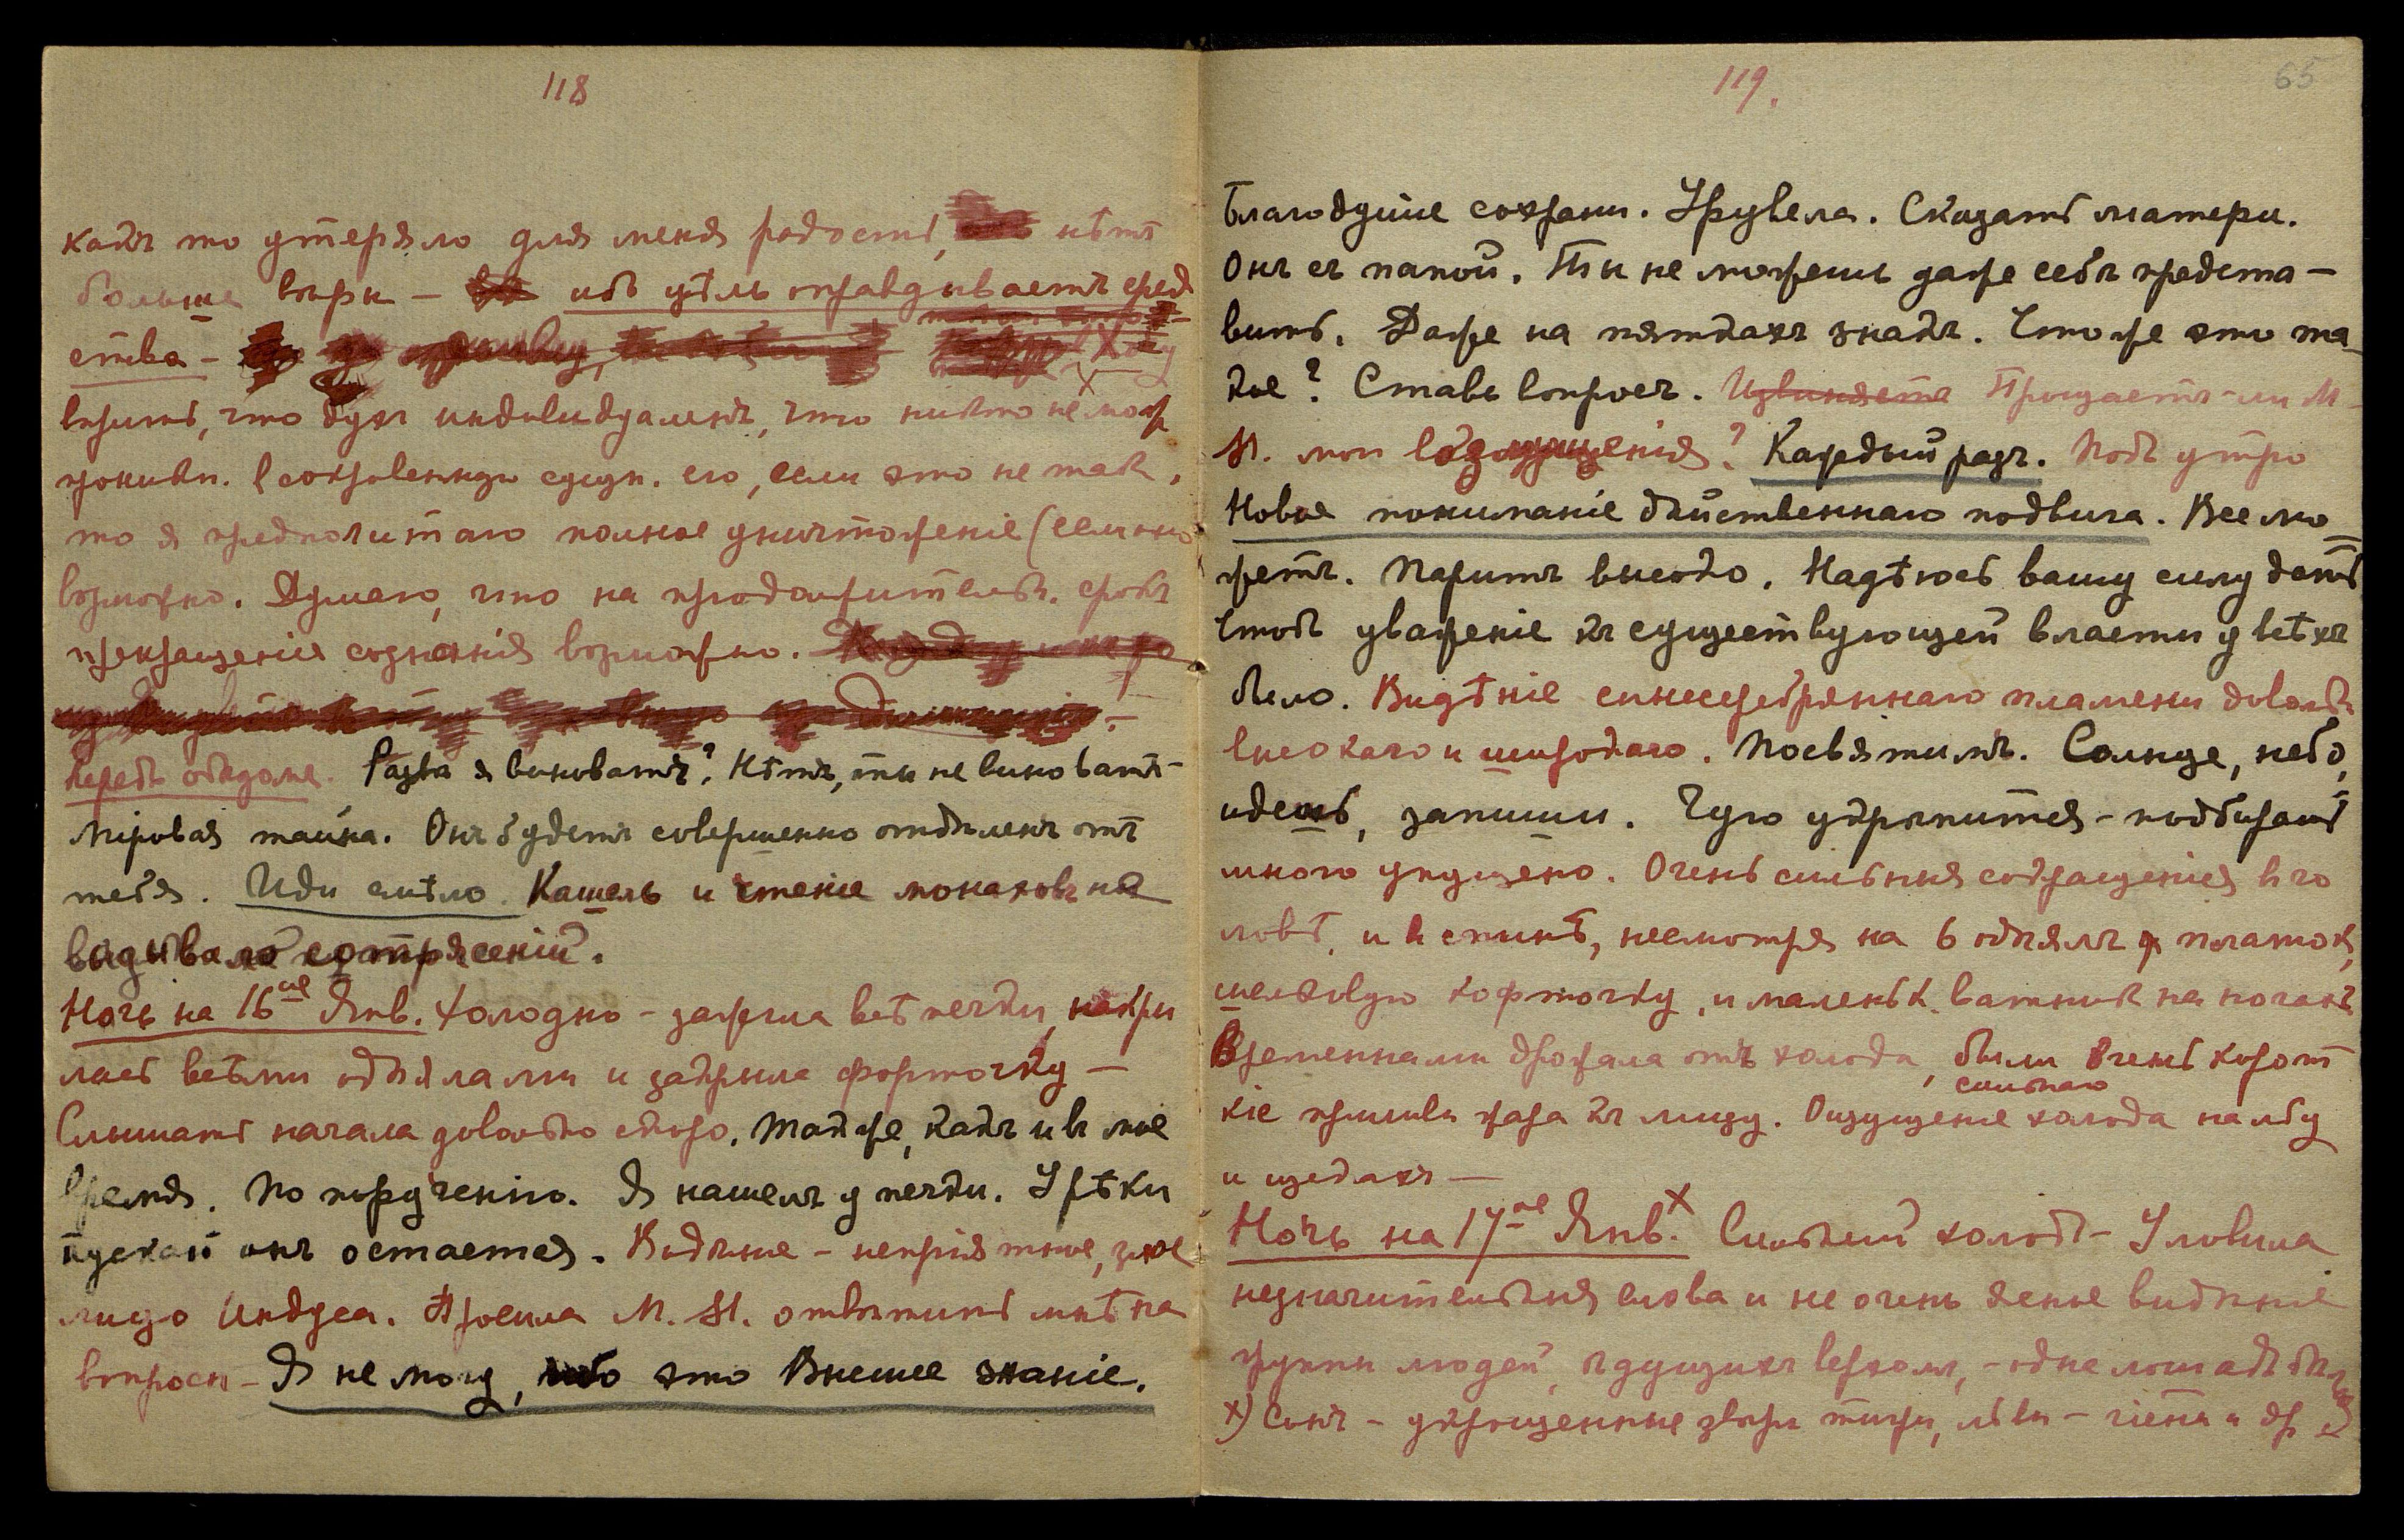 118
какъ то утеряло для меня радость, нѣтъ
больше вѣры – ибо цѣль оправдываетъ сред
ства – Хочу
вѣрить, что духъ индивидуаленъ, что никто не мож
проникн. въ сокровенную сущн. его, если это не такъ,
то я предпочитаю полное уничтоженіе (если оно
возможно. Думаю, что на продолжительн. срокъ
прекращеніе сознанія возможно.
Передъ обѣдомъ. Развѣ я виноватъ? Нѣтъ, ты не виноватъ –
Міровая тайна. Онъ будетъ совершенно отдѣленъ отъ
тебя. Иди смѣло. Кашель и чтеніе монаховъ не
вызывало сотрясеній.
Ночь на 16ое Янв. Холодно – зажгла всѣ печки, накры
лась всѣми одѣялами и закрыла форточку –
Слышать начала довольно скоро. Также, какъ и въ мое
время. По порученію. Я нашелъ у печки. Урѣки
пускай онъ остается. Видѣніе – непріятное, злое
лицо Индуса. Просила М. М. отвѣтить мнѣ на
вопросы – Я не могу, ибо это Высшее знаніе.
119.
65
Благодушіе сохрани. Урувела. Сказать матери.
Онъ съ папой. Ты не можешь даже себѣ предста–
вить. Даже на пяткахъ знакъ. Что же это та–
кое? Ставь вопросъ. Извиняетъ Прощаетъ-ли М–
М. мои возмущенія? Каждый разъ. Подъ утро
Новое пониманіе дѣйственнаго подвига. Все мо=
жетъ. Паритъ высоко. Надѣюсь вашу силу дать
Чтобъ уваженіе къ существующей власти у всѣхъ
было. Видѣніе синесеребряннаго пламени довольн
высокаго и широкаго. Посвятилъ. Солнце, небо,
идешь, запиши. Чую укрѣпится – подбирать
много упущено. Очень сильныя сокращенія въ го
ловѣ, и въ спинѣ, несмотря на 6 одѣялъ платокъ,
шелковую кофточку, и маленьк. ватникъ на ногахъ
Временами дрожала отъ холода, были очень корот
кіе приливы жара къ лицу. Ощущеніе сильнаго холода на лбу
и щекахъ –
Ночь на 17ое Янв.х Сильный холодъ – Уловила
незначительныя слова и не очень ясное видѣніе
группы людей, ѣдущихъ верхомъ, – одна лошадь бѣлая
х) Сонъ – укрощенные звѣри тигры, львы – гіена и др